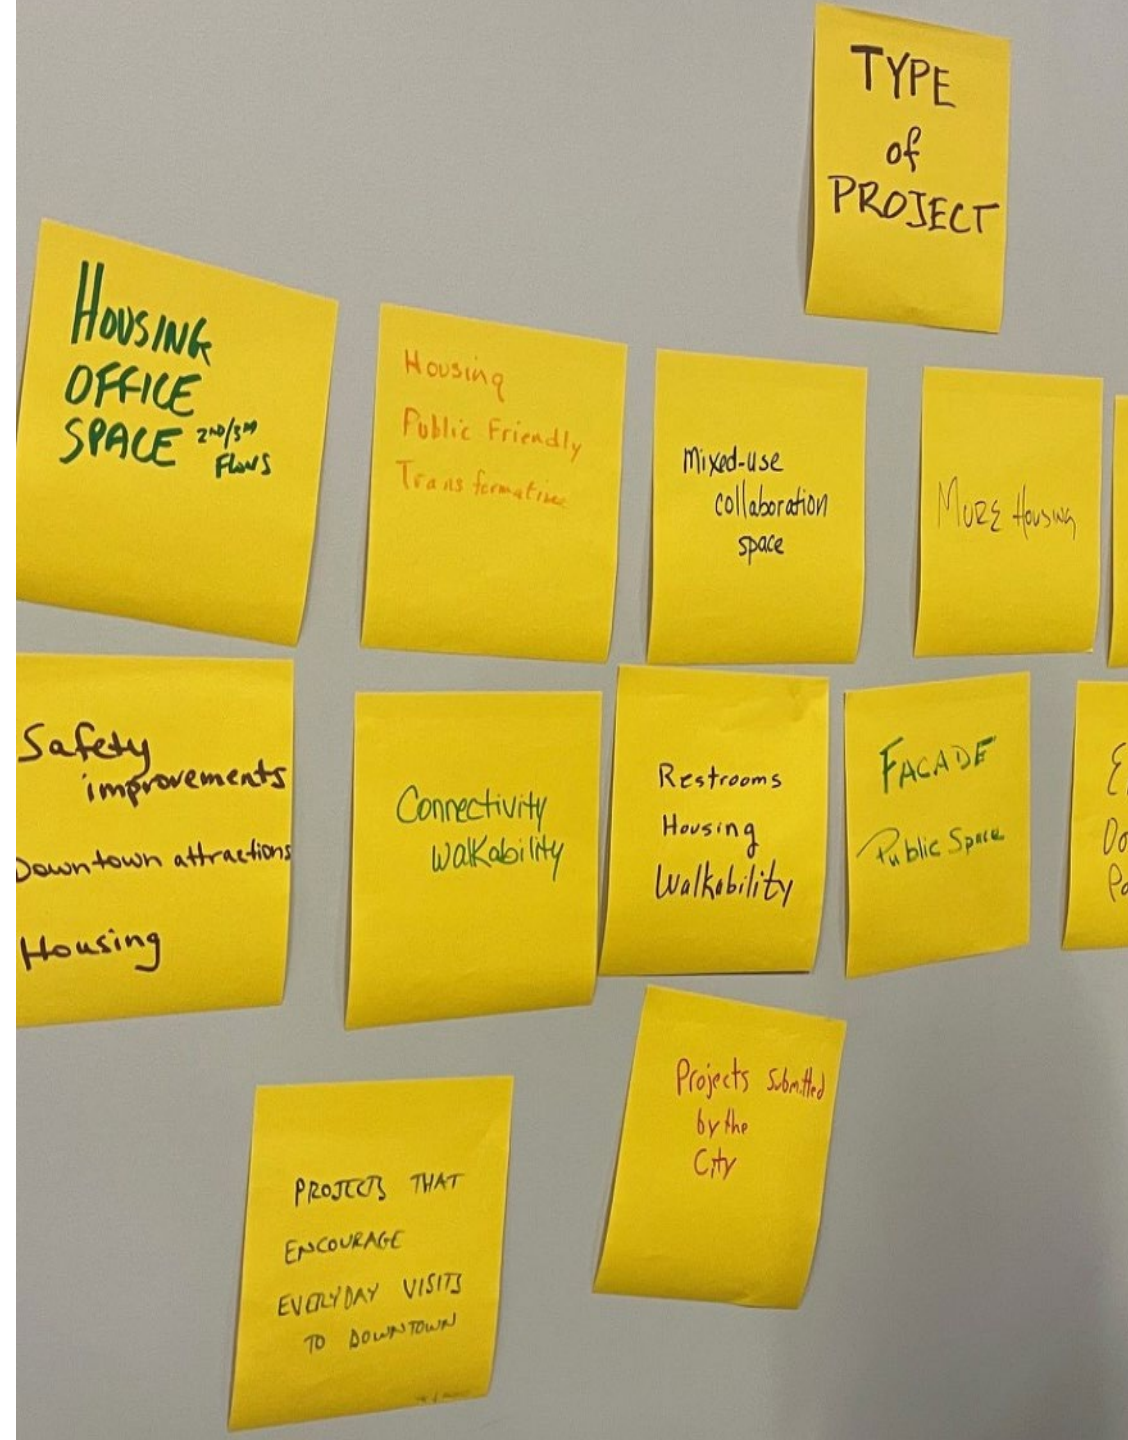 TYPE
of
PROJECT
HOUSING
OFFICE
SPACE 2ND/3RD
FLOORS
Housing
Public Friendly
Transformative
Mixed-use
collaboration
space
MORE HOUSING
Safety
improvements
Downtown attractions
Housing
Connectivity
Walkability
Restrooms
Housing
Walkability
FACADE
Public Space
Do
Po
Projects Submitted
by the
City
PROJECTS THAT
ENCOURAGE
EVERYDAY VISITS
TO DOWNTOWN